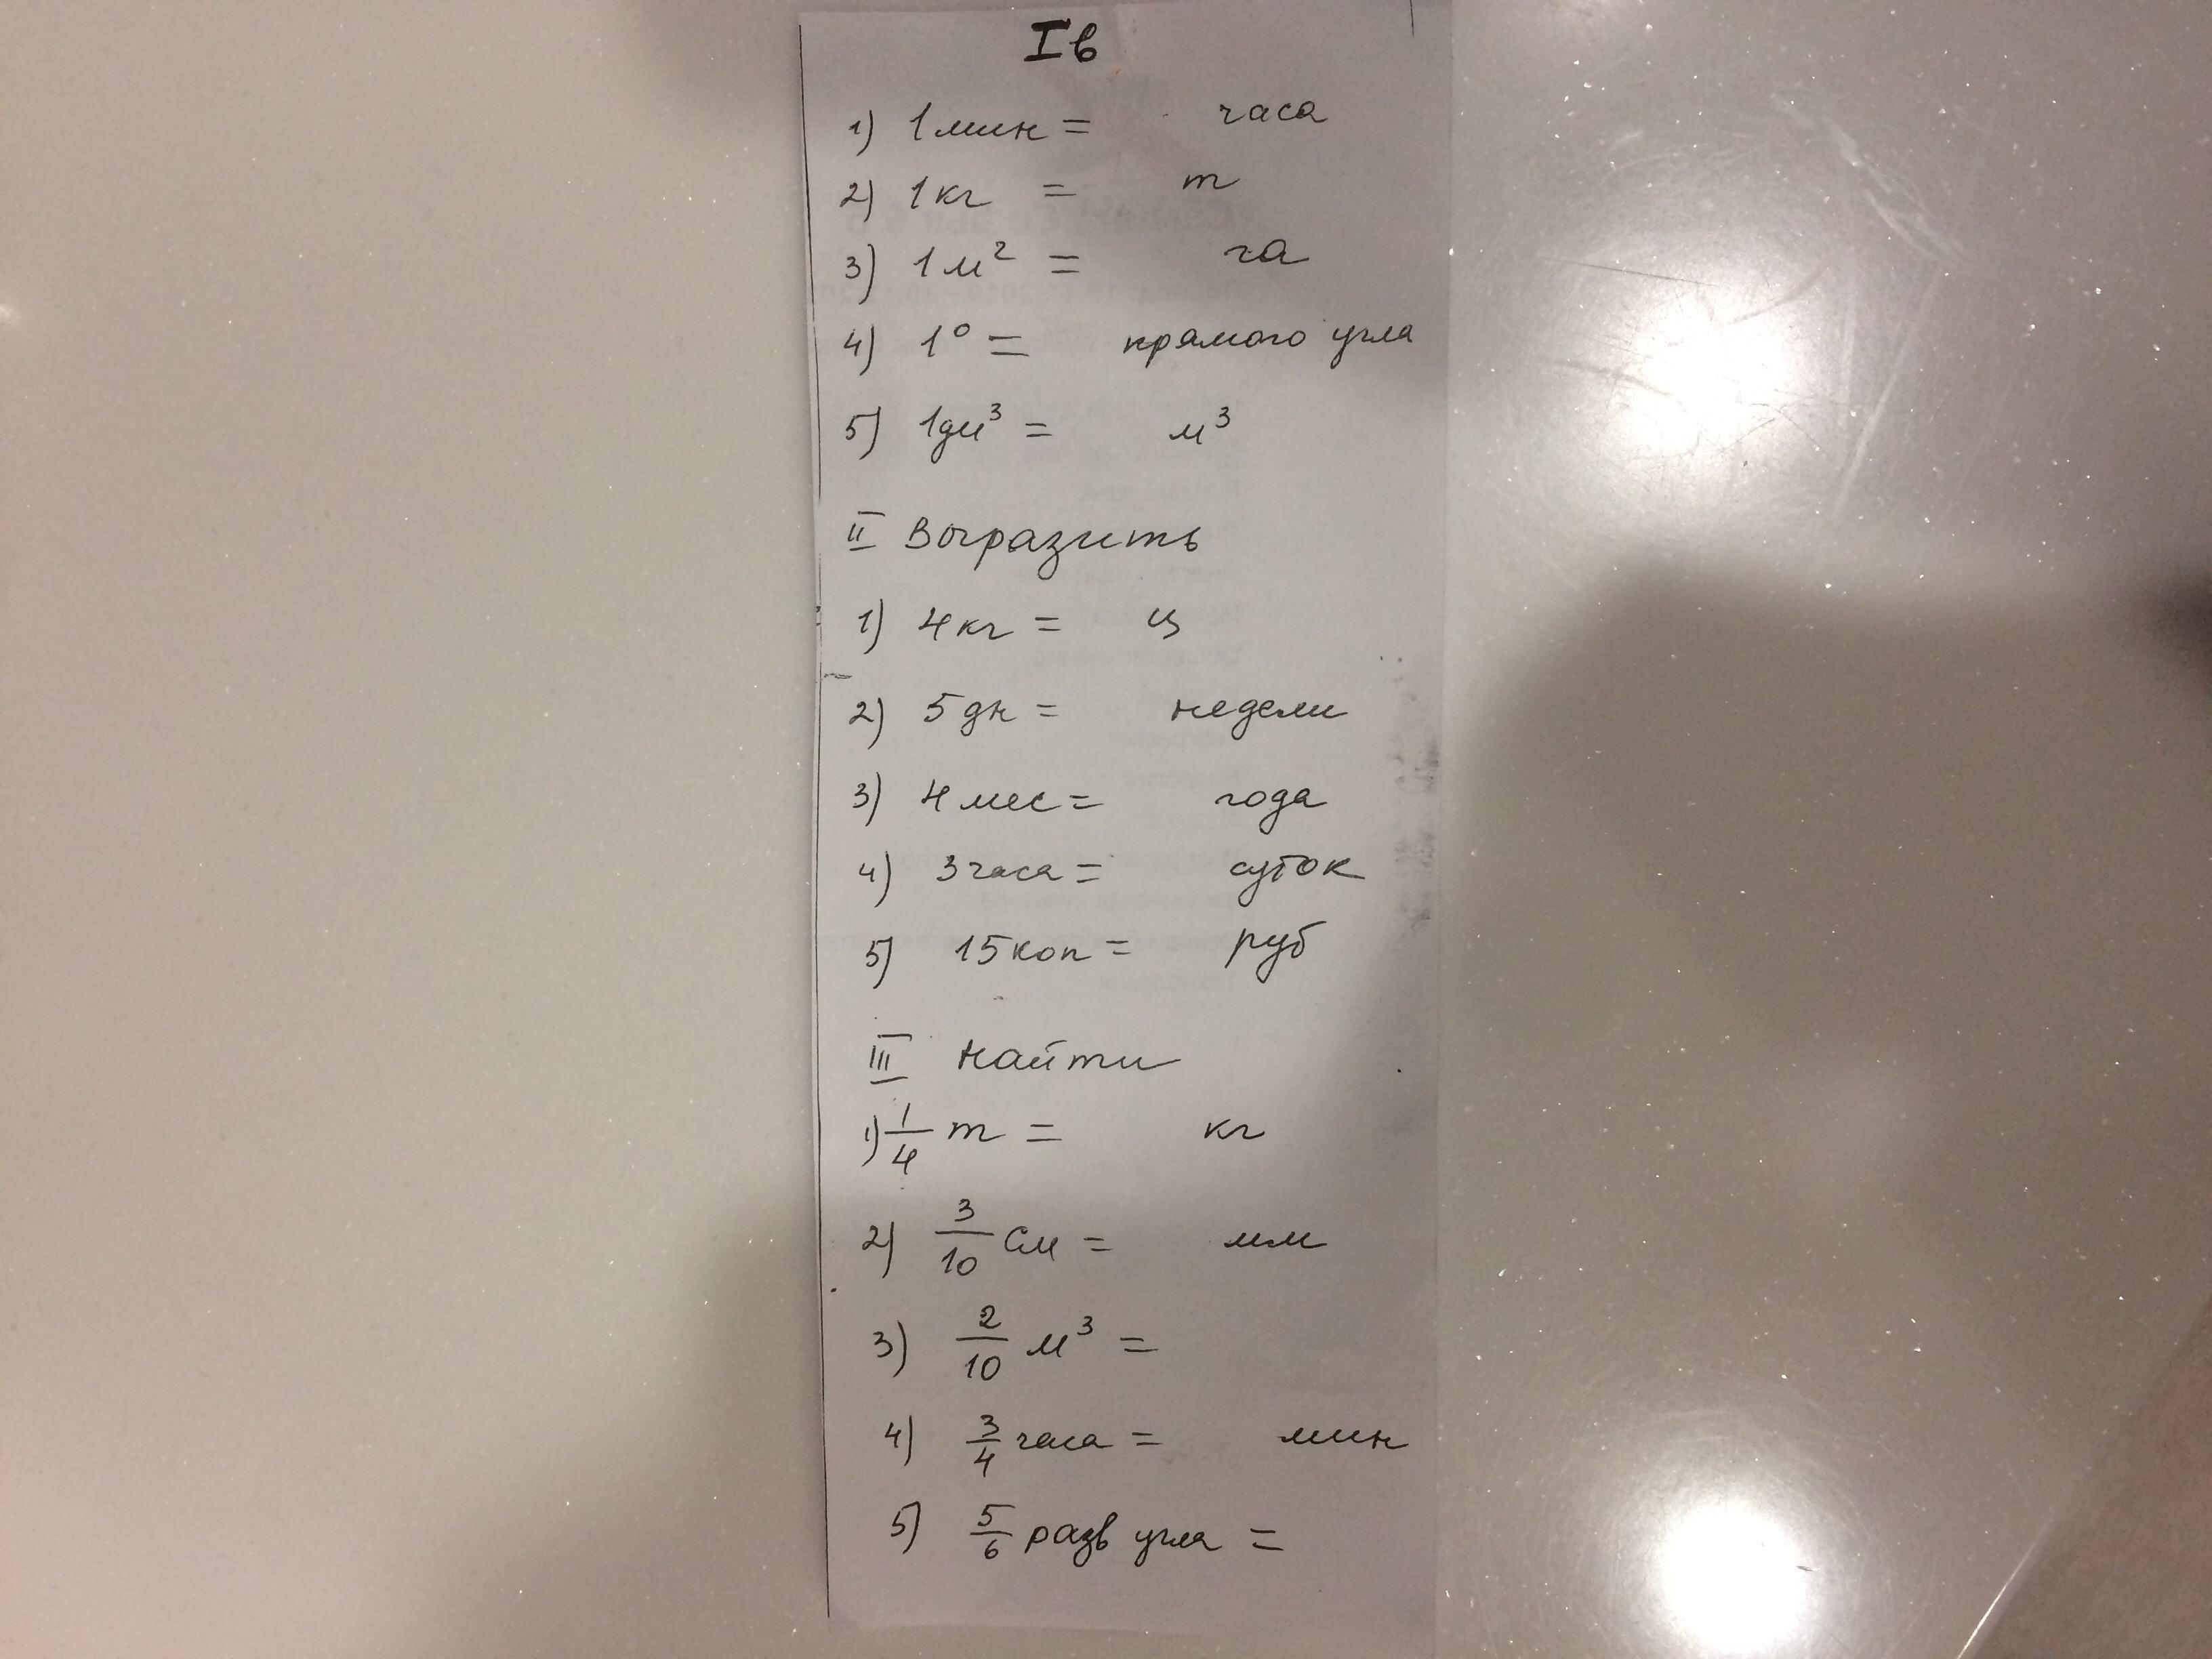 Iв
1) 1 мин = часа
2) 1 кг = т
3) 1 м² = га
4) 1° = прямого угла
5) 1 дм³ = м³
II Выразить
1) 4 кг = ц
2) 5 дн = недели
3) 4 мес = года
4) 3 часа = суток
5) 15 коп = руб
III Найти
1) 1/4 т = кг
2) 3/10 см = мм
3) 2/10 м³ =
4) 3/4 часа = мин
5) 5/6 разв угла =